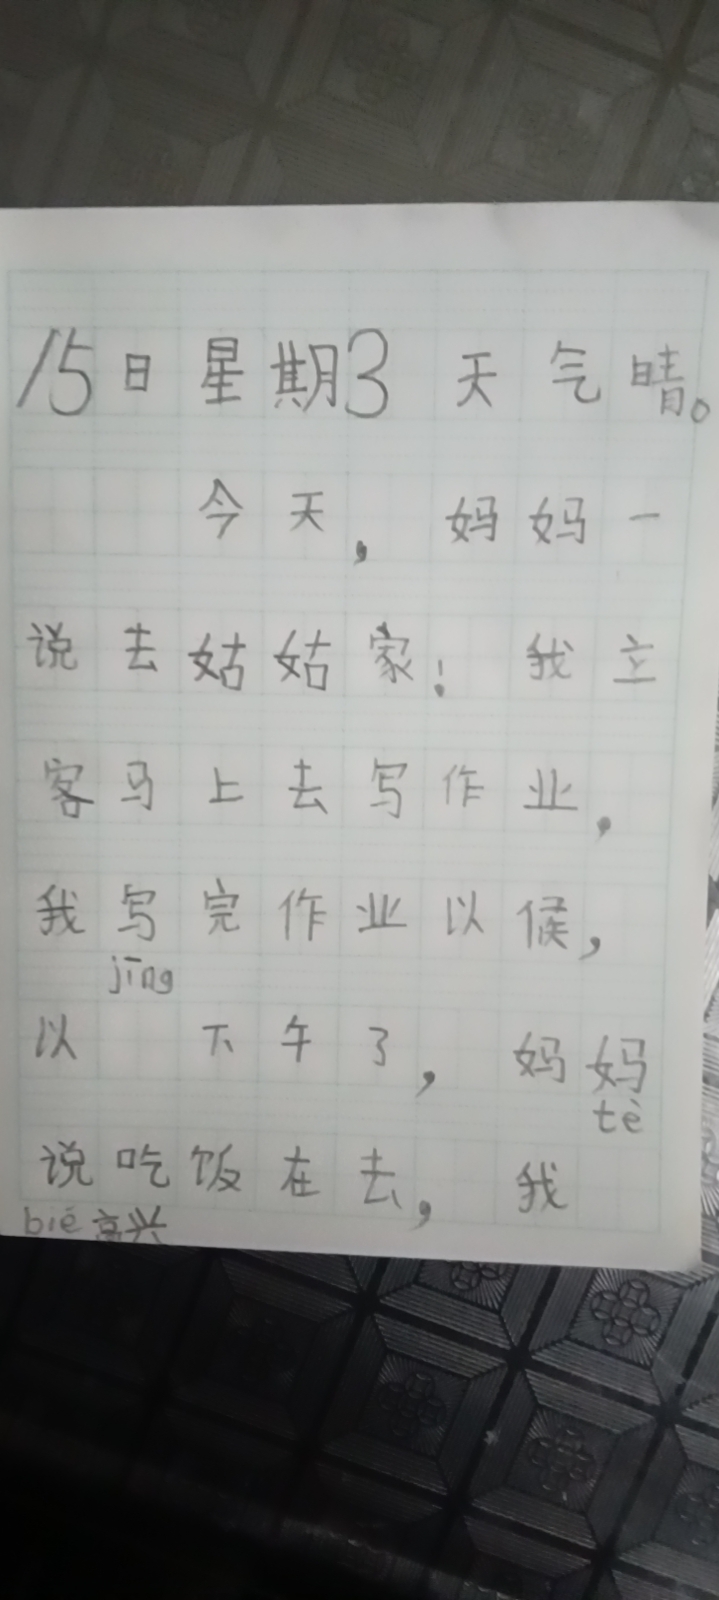 15日星期3 天气晴。
今天，妈妈一
说去姑姑家！我立
客马上去写作业，
我写完作业以候，
jīng
以 下午了，妈妈
tè
说吃饭在去，我
bié高兴